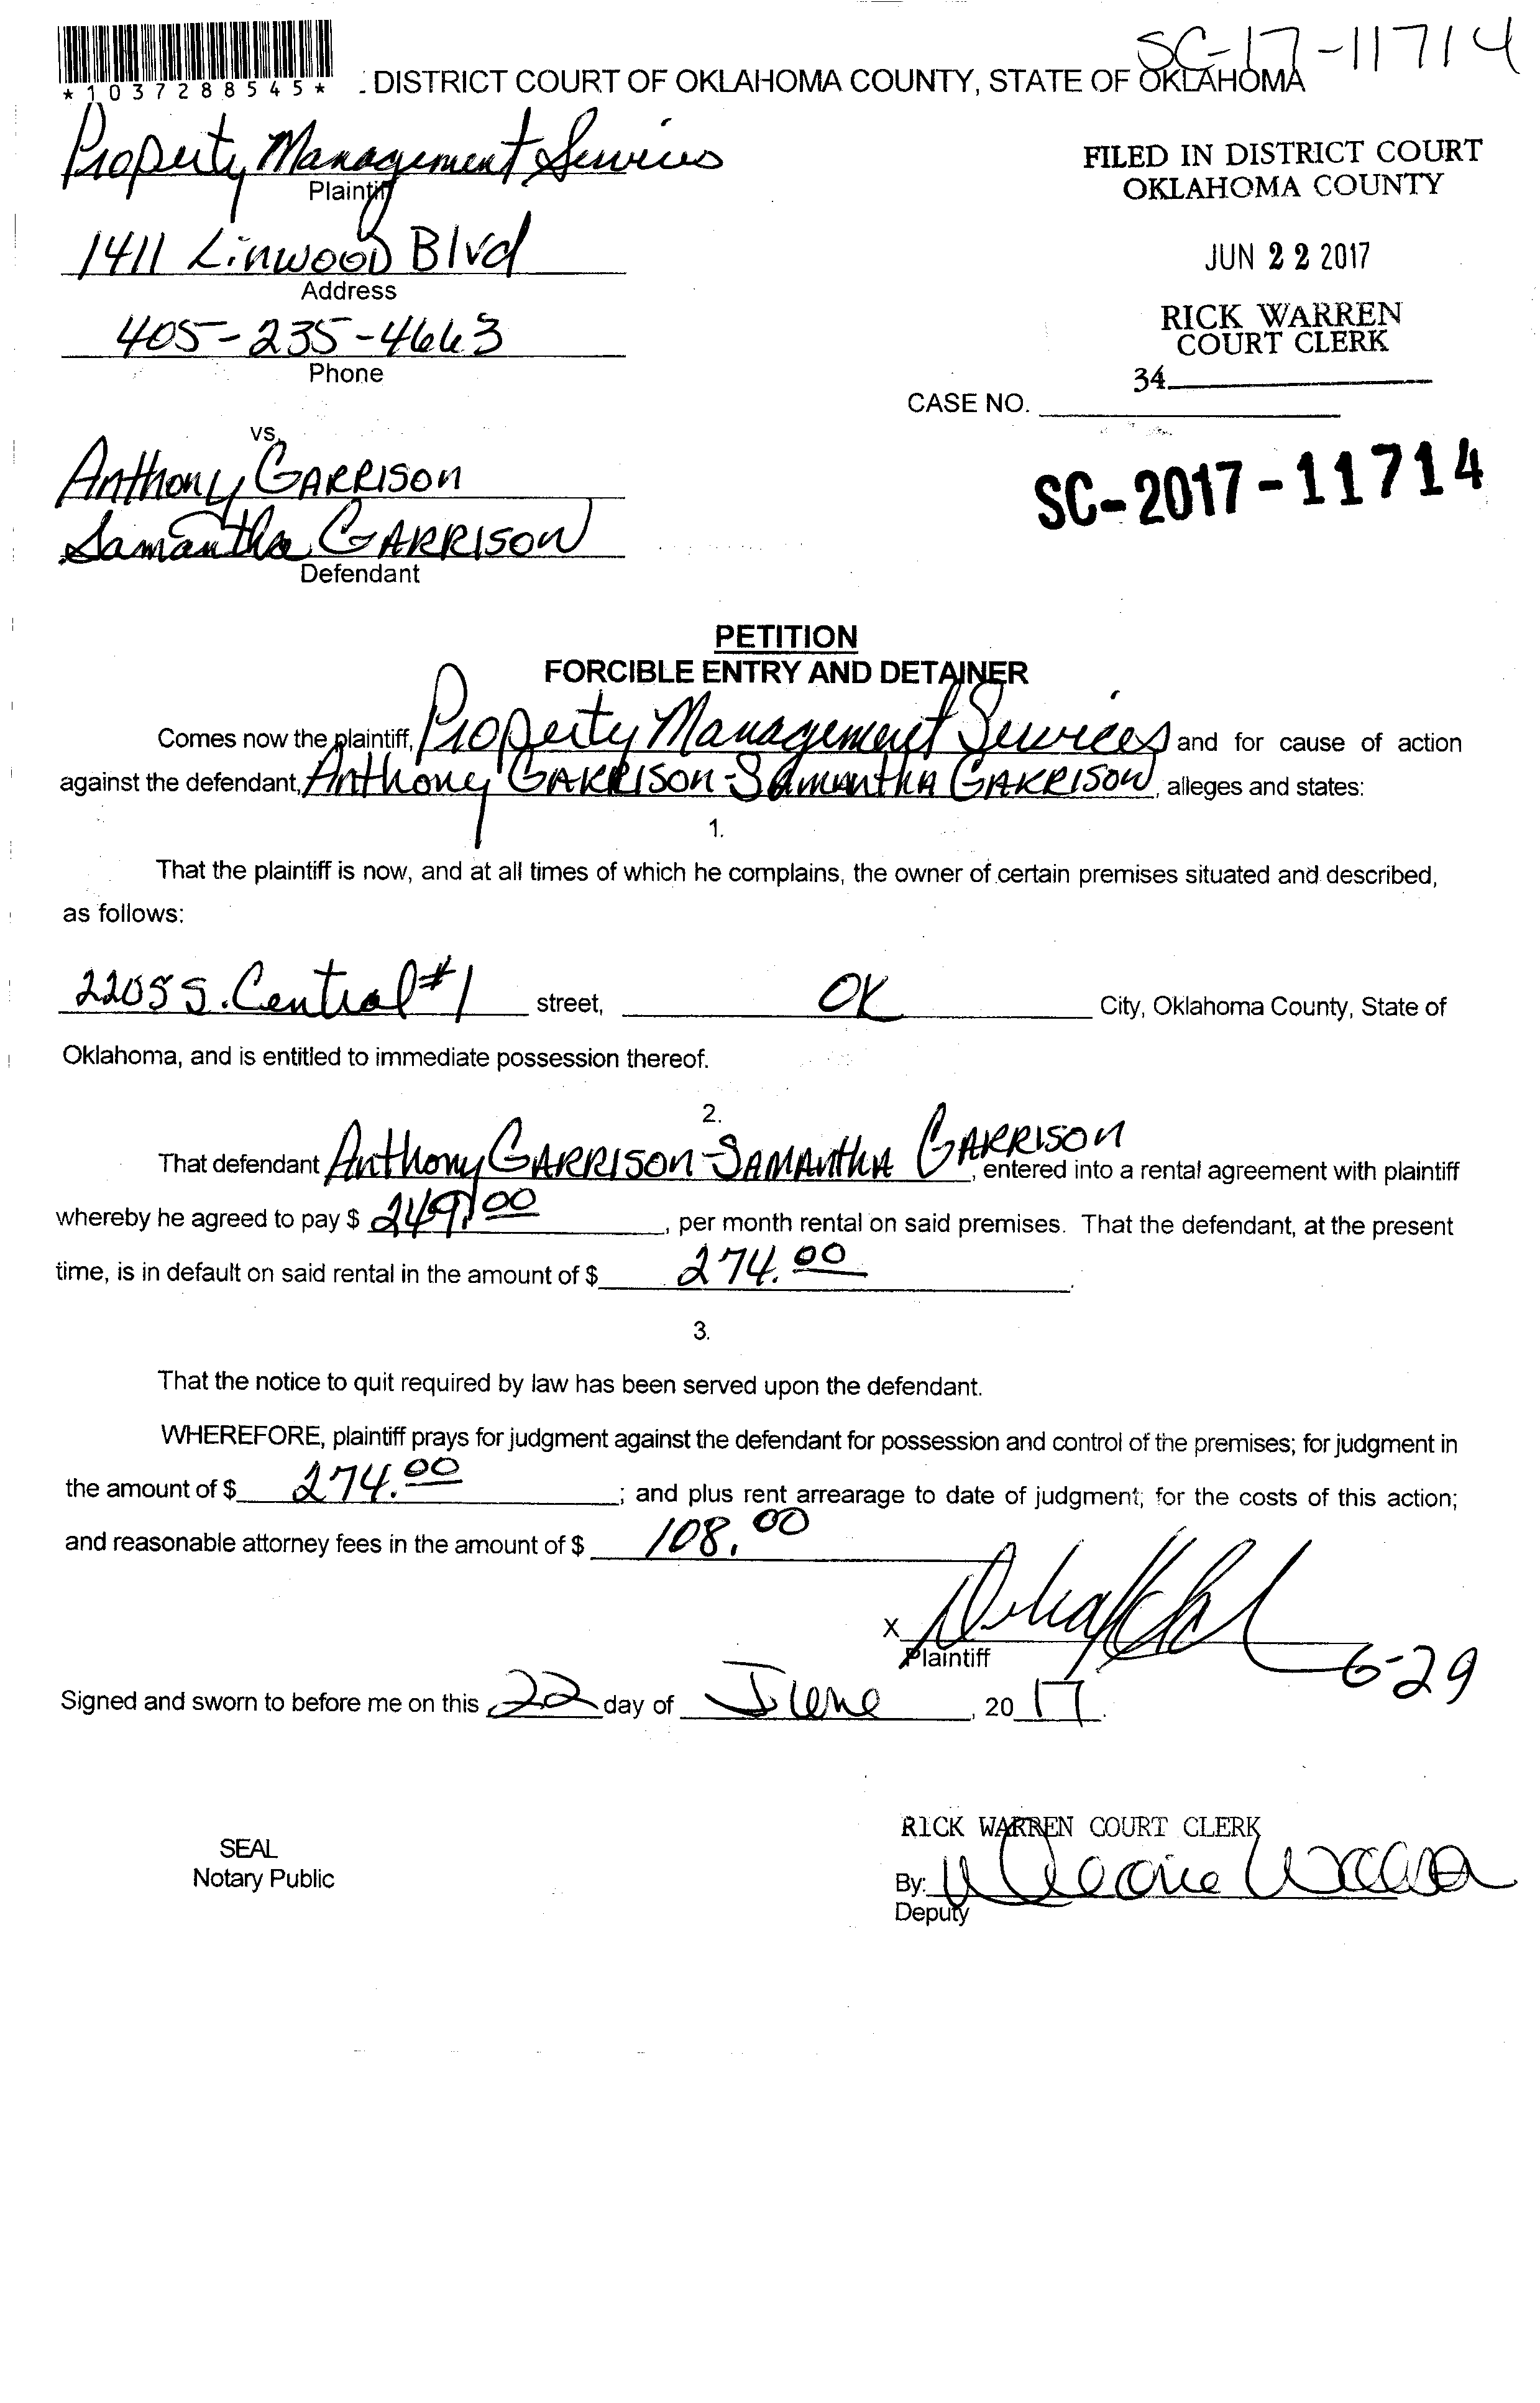 SC-17-11714
*1037288545*
DISTRICT COURT OF OKLAHOMA COUNTY, STATE OF OKLAHOMA
Property Management Services
Plaintiff
FILED IN DISTRICT COURT
OKLAHOMA COUNTY
1411 Linwood Blvd
Address
JUN 22 2017
405-235-4663
Phone
RICK WARREN
COURT CLERK
34
CASE NO.
vs.
Anthony GARRISON
SC-2017-11714
Samantha GARRISON
Defendant
PETITION
FORCIBLE ENTRY AND DETAINER
Comes now the plaintiff, Property Management Services and for cause of action
against the defendant, Anthony GARRISON-SAMANTHA GARRISON, alleges and states:
1.
That the plaintiff is now, and at all times of which he complains, the owner of certain premises situated and described,
as follows:
2205 S. Central #1 street, OK City, Oklahoma County, State of
Oklahoma, and is entitled to immediate possession thereof.
2.
That defendant Anthony GARRISON-SAMANTHA GARRISON, entered into a rental agreement with plaintiff
whereby he agreed to pay $ 249.00, per month rental on said premises. That the defendant, at the present
time, is in default on said rental in the amount of $ 274.00.
3.
That the notice to quit required by law has been served upon the defendant.
WHEREFORE, plaintiff prays for judgment against the defendant for possession and control of the premises; for judgment in
the amount of $ 274.00; and plus rent arrearage to date of judgment; for the costs of this action;
and reasonable attorney fees in the amount of $ 108.00
X
Plaintiff
6-29
Signed and sworn to before me on this 22 day of June, 2017.
RICK WARREN COURT CLERK
SEAL
Notary Public
By:
Deputy